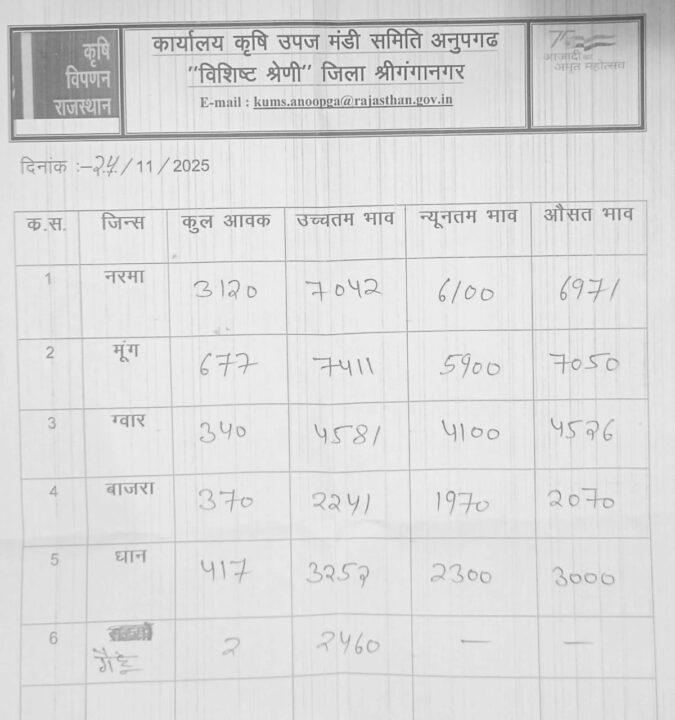 कृषि
विपणन
राजस्थान
कार्यालय कृषि उपज मंडी समिति अनुपगढ
"विशिष्ट श्रेणी" जिला श्रीगंगानगर
E-mail : kums.anoopga@rajasthan.gov.in
75
आजादी का
अमृत महोत्सव
दिनांक :-24/11/2025
क.स. जिन्स कुल आवक उच्चतम भाव न्यूनतम भाव औसत भाव
1 नरमा 3120 7042 6100 6971
2 मूंग 677 7411 5900 7050
3 ग्वार 340 4581 4100 4526
4 बाजरा 370 2241 1970 2070
5 धान 417 3252 2300 3000
6 गैहू 2 2460 — —